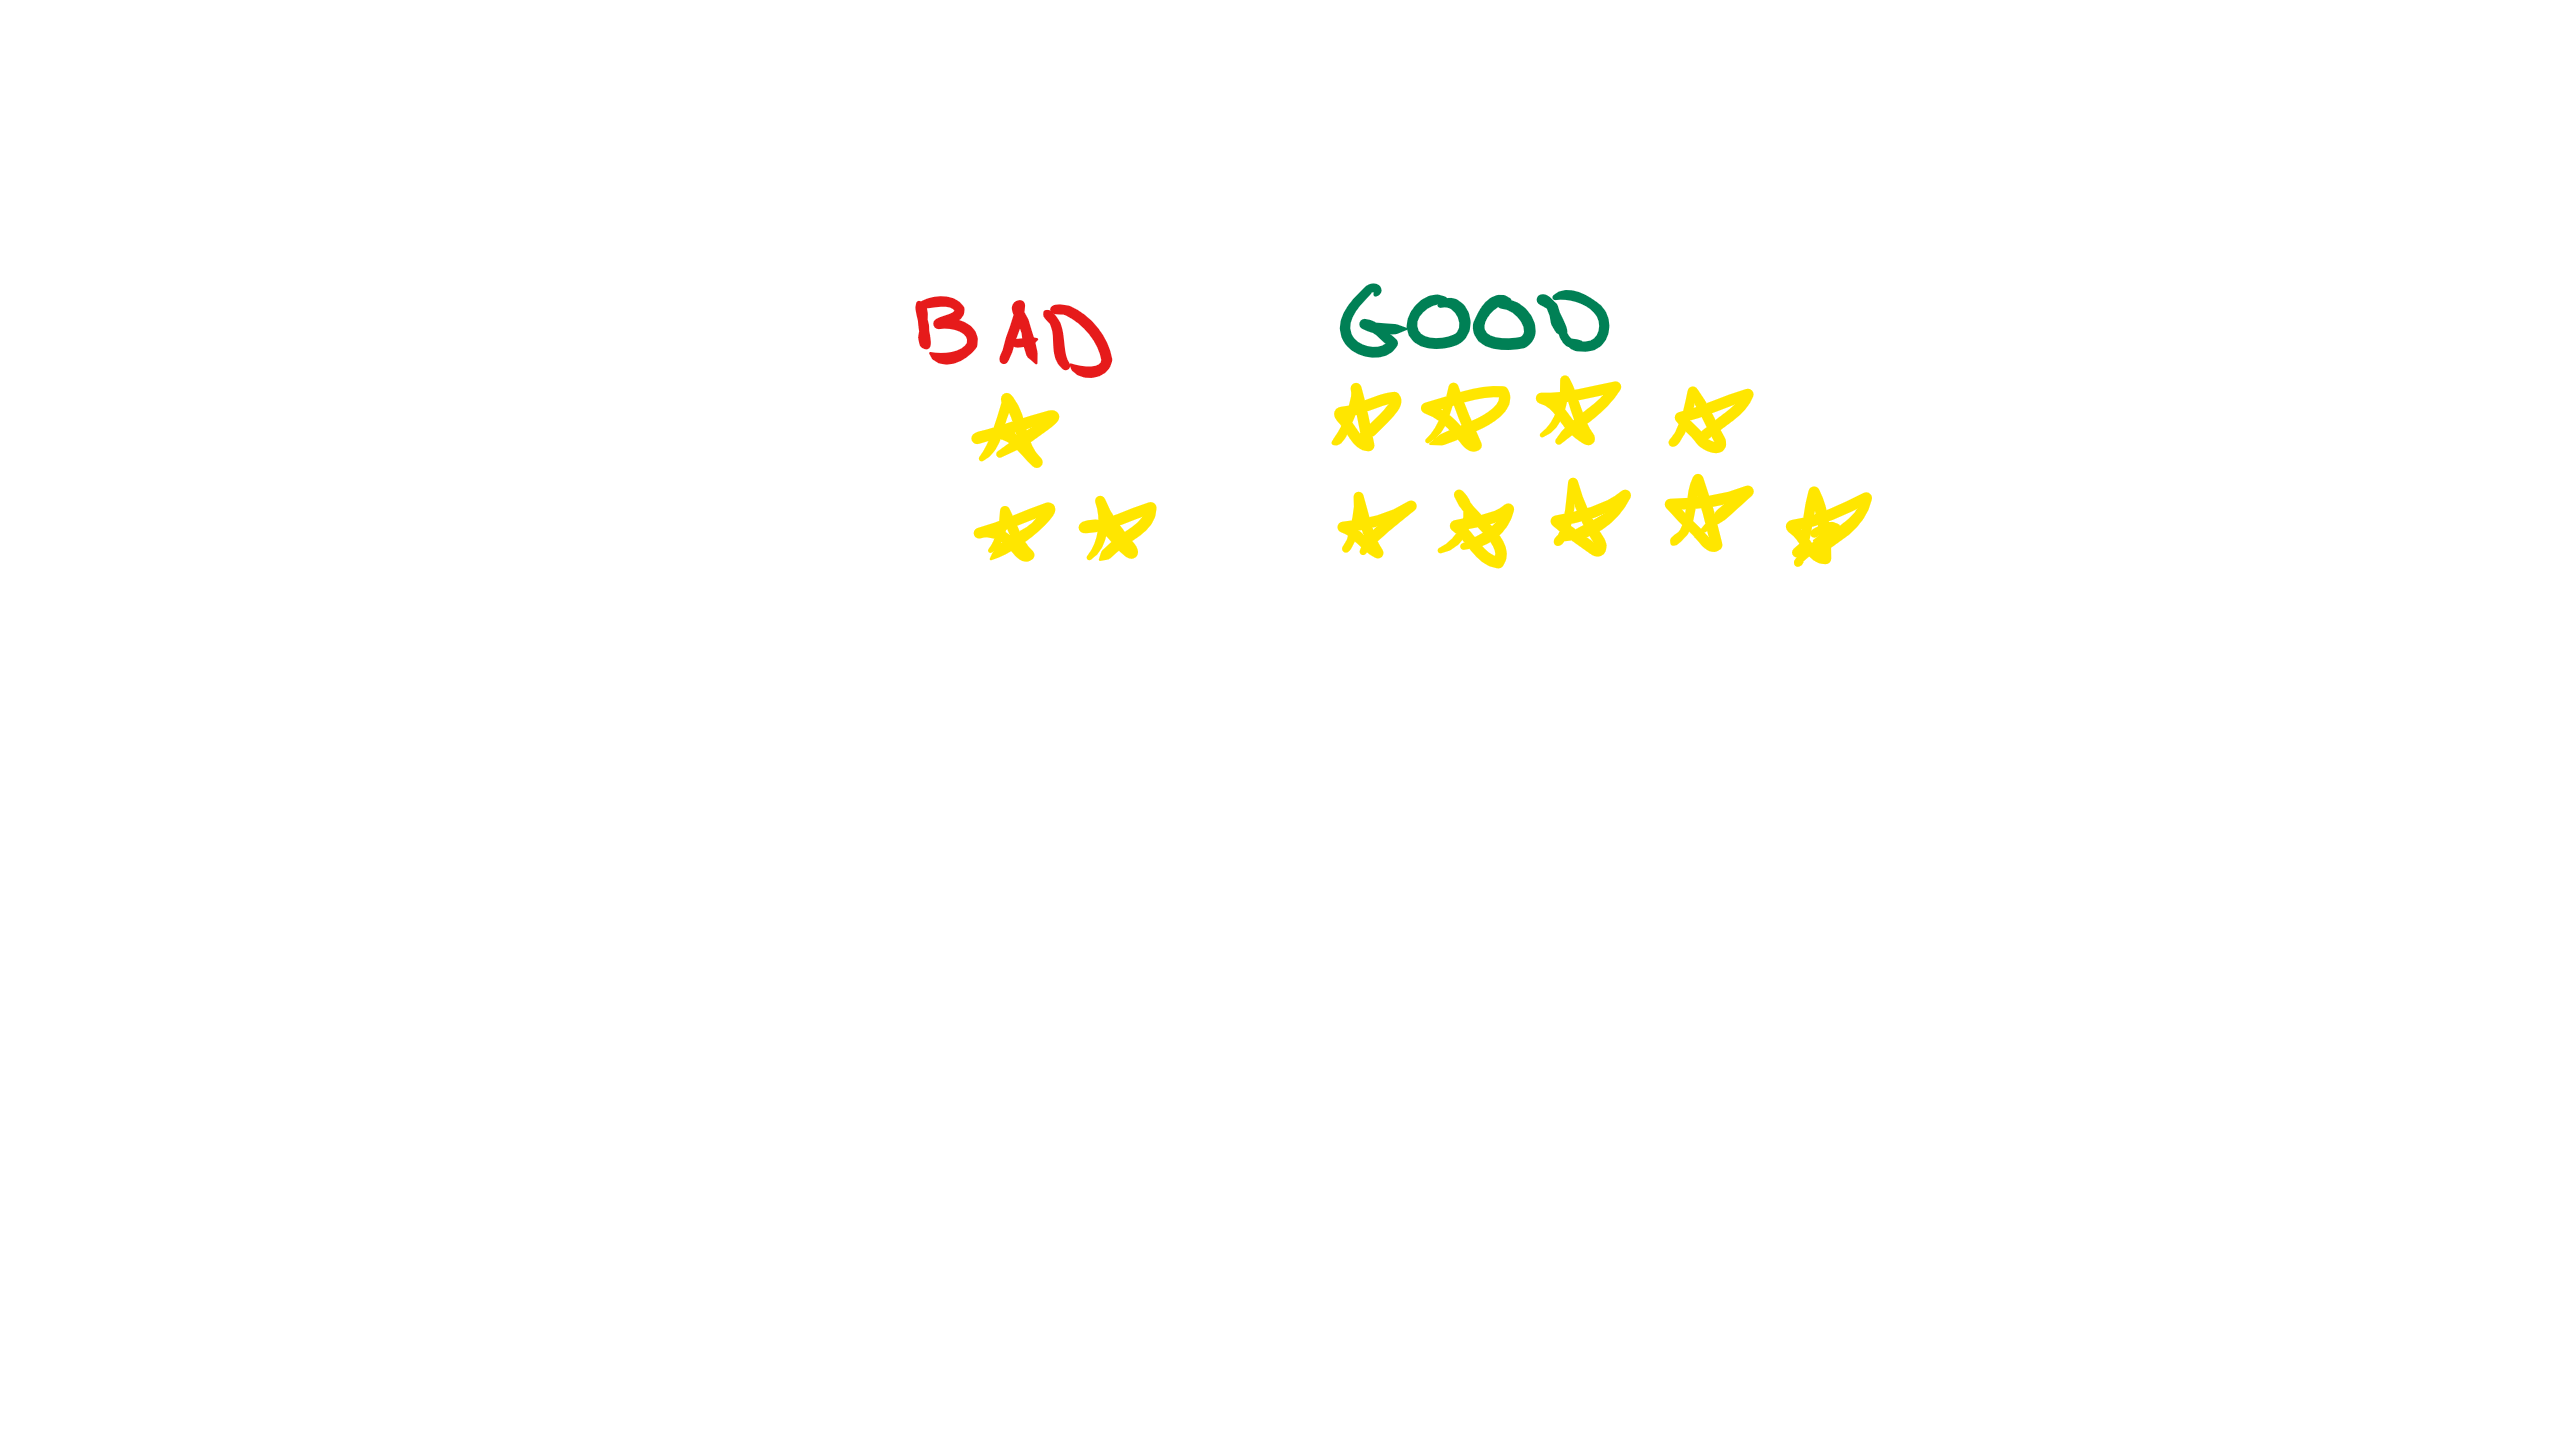 BAD GOOD